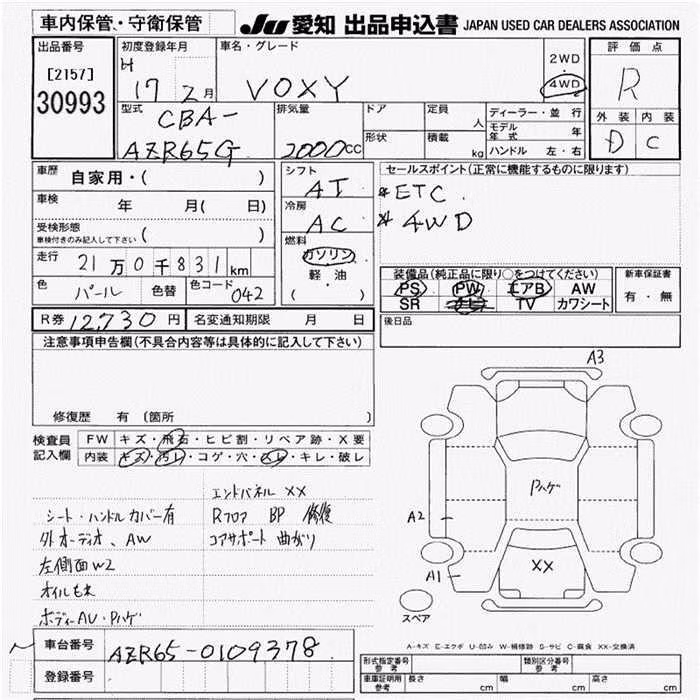 車内保管、・守衛保管
JU 愛知 出品申込書 JAPAN USED CAR DEALERS ASSOCIATION
出品番号
[2157]
30993
初度登録年月
H
17 2月
車名・グレード
VOXY
2WD
・
4WD
評価点
R
外装 内装
D C
型式
CBA-
AZR65G
排気量
2000cc
ドア
定員
人
形状
積載
kg
ディーラー・並行
モデル年式 年
ハンドル 左・右
車歴
自家用・( )
車検
年 月( 日)
受検形態
車検付きのみ記入して下さい ( )
走行
21万0千831km
色
パール
色替
色コード 042
シフト
AT
冷房
AC
燃料
ガソリン
軽・油
( )
セールスポイント(正常に機能するものに限ります)
*ETC
*4WD
装備品(純正品に限り○をつけてください)
PS PW エアB AW
SR ナビ TV カワシート
新車保証書
有・無
R券 12,730円
名変通知期限 月 日
後日品
注意事項申告欄(不具合内容等は具体的に記入して下さい)
修復歴 有 〔箇所 〕
検査員
記入欄
FW キズ・飛石・ヒビ割・リペア跡・X要
内装 キズ・汚レ・コゲ・穴・スレ・キレ・破レ
エンドパネル XX
シート・ハンドルカバー有
Rフロア BP 修復
外オーディオ、AW
コアサポート 曲がり
左側面W2
オイルもれ
ボディーAU・Pハゲ
A3
Pハゲ
A2
XX
A1
スペア
A-キズ E-エクボ U-凹み W-補修跡 S-サビ C-腐食 XX-交換済
車台番号
AZR65-0109378
登録番号
形式指定番号
参考
類別区分番号
参考
車庫証明用
参考
長さ cm
幅 cm
高さ cm